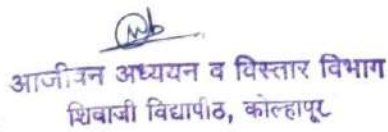 आजीवन अध्ययन व विस्तार विभाग
शिवाजी विद्यापीठ, कोल्हापूर